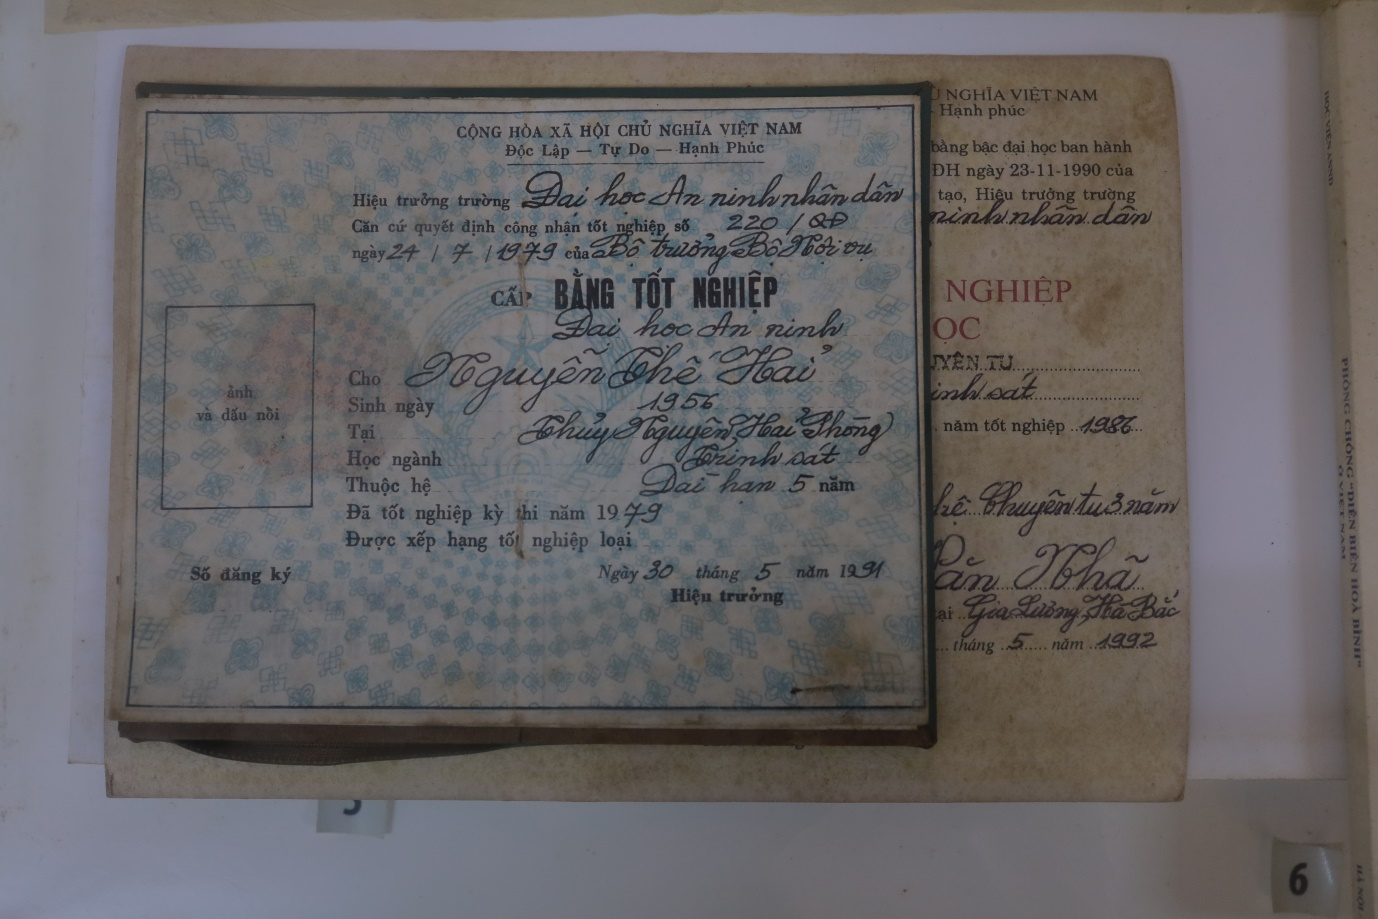 CỘNG HÒA XÃ HỘI CHỦ NGHĨA VIỆT NAM
Độc Lập — Tự Do — Hạnh Phúc
Hiệu trưởng trường Đại học An ninh nhân dân
Căn cứ quyết định công nhận tốt nghiệp số 220 / QĐ
ngày 24 / 7 / 1979 của Bộ trưởng Bộ Nội vụ
CẤP BẰNG TỐT NGHIỆP
Đại học An ninh
Cho Nguyễn Thế Hải
Sinh ngày 1956
Tại Thủy Nguyên, Hải Phòng
Học ngành Trinh sát
Thuộc hệ Dài hạn 5 năm
Đã tốt nghiệp kỳ thi năm 1979
Được xếp hạng tốt nghiệp loại
ảnh
và dấu nổi
Số đăng ký
Ngày 30 tháng 5 năm 1991
Hiệu trưởng
NGHĨA VIỆT NAM
Hạnh phúc
bằng bậc đại học ban hành
ĐH ngày 23-11-1990 của
tạo, Hiệu trưởng trường
ninh nhân dân
NGHIỆP
ỌC
UYÊN TU
inh sát
năm tốt nghiệp 1986
hệ Chuyên tu 3 năm
Văn Nhã
ại Gia Lương, Hà Bắc
tháng 5 năm 1992
HỌC VIỆN AN NINH
PHÒNG CHỐNG "DIỄN BIẾN HOÀ BÌNH"
Ở VIỆT NAM
HÀ NỘI
5
6